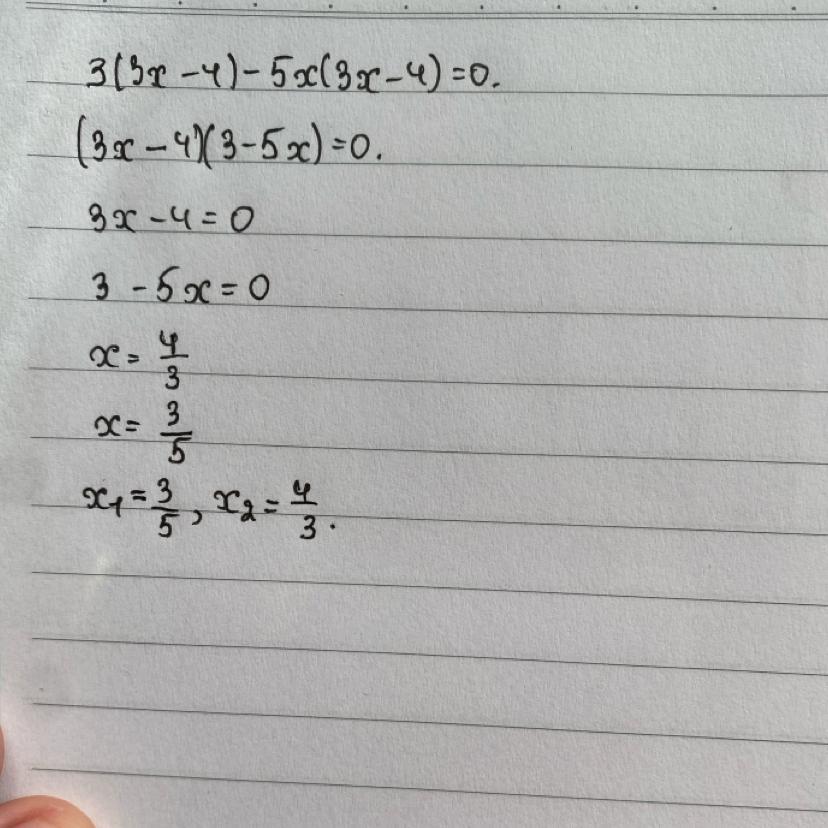 3(3x-4)-5x(3x-4)=0.
(3x-4)(3-5x)=0.
3x-4=0
3-5x=0
x=4/3
x=3/5
x₁=3/5, x₂=4/3.